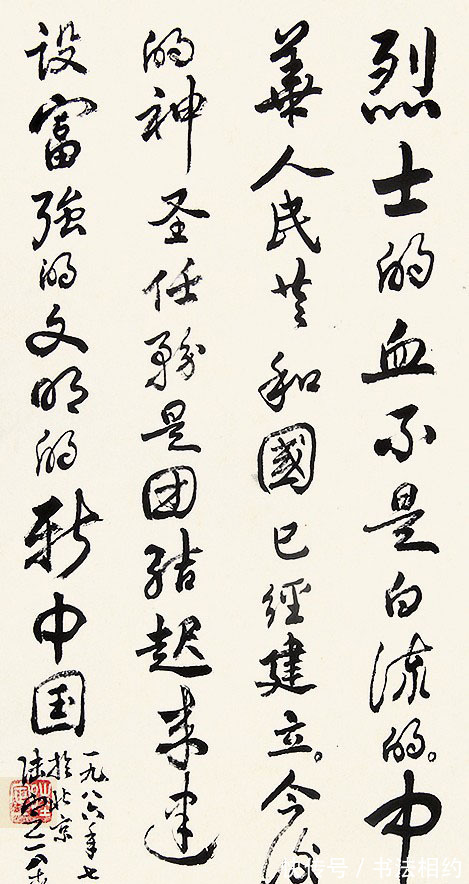 烈士的血不是白流的。中
華人民共和國已經建立。今後
的神圣任務是团结起来建
设富強的文明的新中国
一九八六年七
於北京
陆定一
快传号 / 书法相约